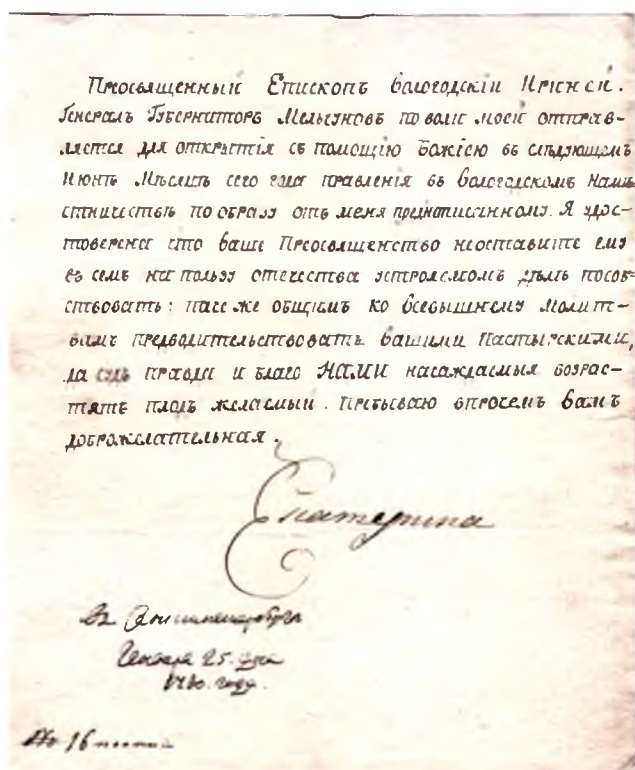 Преосвященный Епископъ Вологодскій Ириней.
Генералъ Губернаторъ Мельгуновъ по воле моей отправ-
ляется для открытія съ помощію Божіею въ слѣдующемъ
Июнѣ Мѣсяцѣ сего года правленія въ Вологодскомъ Намѣ
стничествѣ по образу отъ меня предписанному. Я удос-
товерена что ваше Преосвященство неоставите ему
въ семъ на пользу отечества устрояемомъ дѣлѣ пособ-
ствовать: паче же общимъ ко Всевышнему молит-
вамъ предводительствовать вашими Пастырскими,
да правда и благо НАМИ насаждаемыя возрас-
тятъ плодъ желаемый. Пребываю впрочемъ вамъ
доброжелательная.
Екатерина
Генваря 25. дня
1780. года.